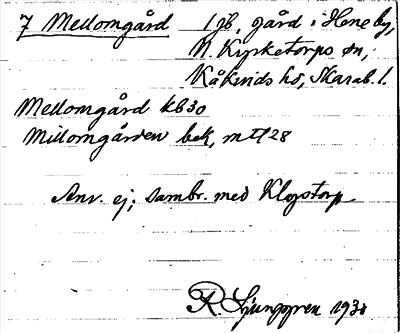 7 Mellomgård 1 gb, gård i Hene by,
N. Kyrketorps sn,
Kåkinds hd, Skarab. l.
Mellomgård kb 30
Millomgården bek, m
Anv. ej; sambr. med Klagstorp
R. Ljunggren 193